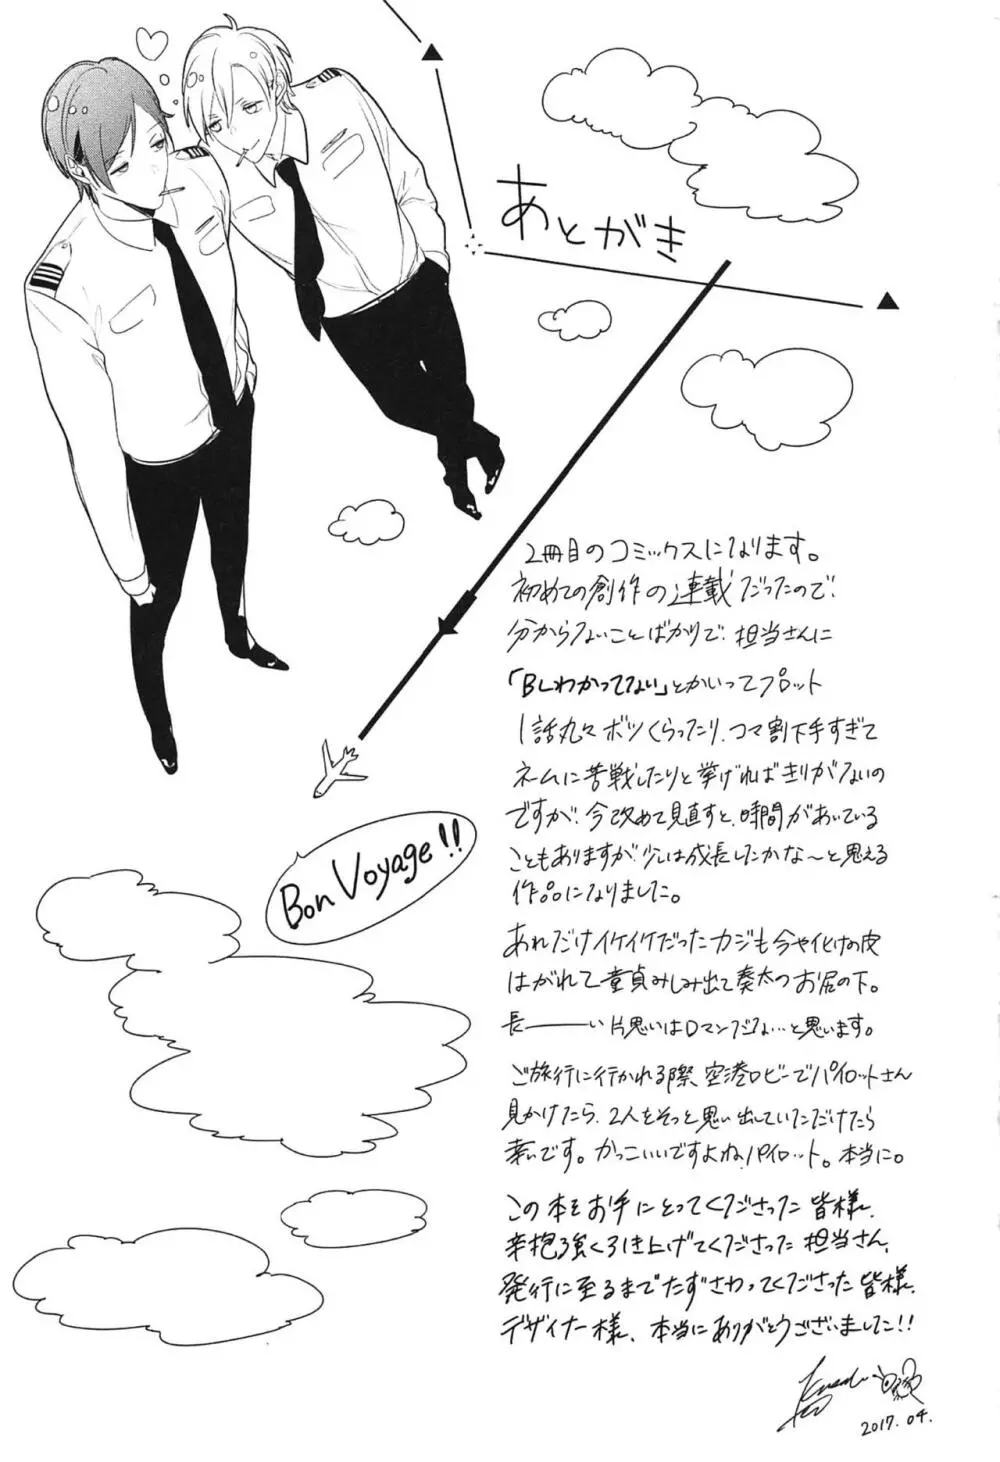 あとがき
2冊目のコミックスになります。
初めての創作の連載だったので、
分からないことばかりで、担当さんに
「BLわかってない」とかいってプロット
1話丸々ボツくらったり、コマ割下手すぎて
ネームに苦戦したりと挙げればきりがないの
ですが、今改めて見直すと、時間があいている
こともありますが、少しは成長したかな〜と思える
作品になりました。
あれだけイケイケだったカジも今や化けの皮
はがれて童貞みしみ出て奏太のお尻の下。
長――い片思いはロマンだな…と思います。
ご旅行に行かれる際、空港ロビーでパイロットさん
見かけたら、2人をそっと思い出していただけたら
幸いです。かっこいいですよね、パイロット。本当に。
この本をお手にとってくださった皆様、
辛抱強く引き上げてくださった担当さん、
発行に至るまでたずさわってくださった皆様、
デザイナー様、本当にありがとうございました!!
2017.04.
Bon Voyage!!